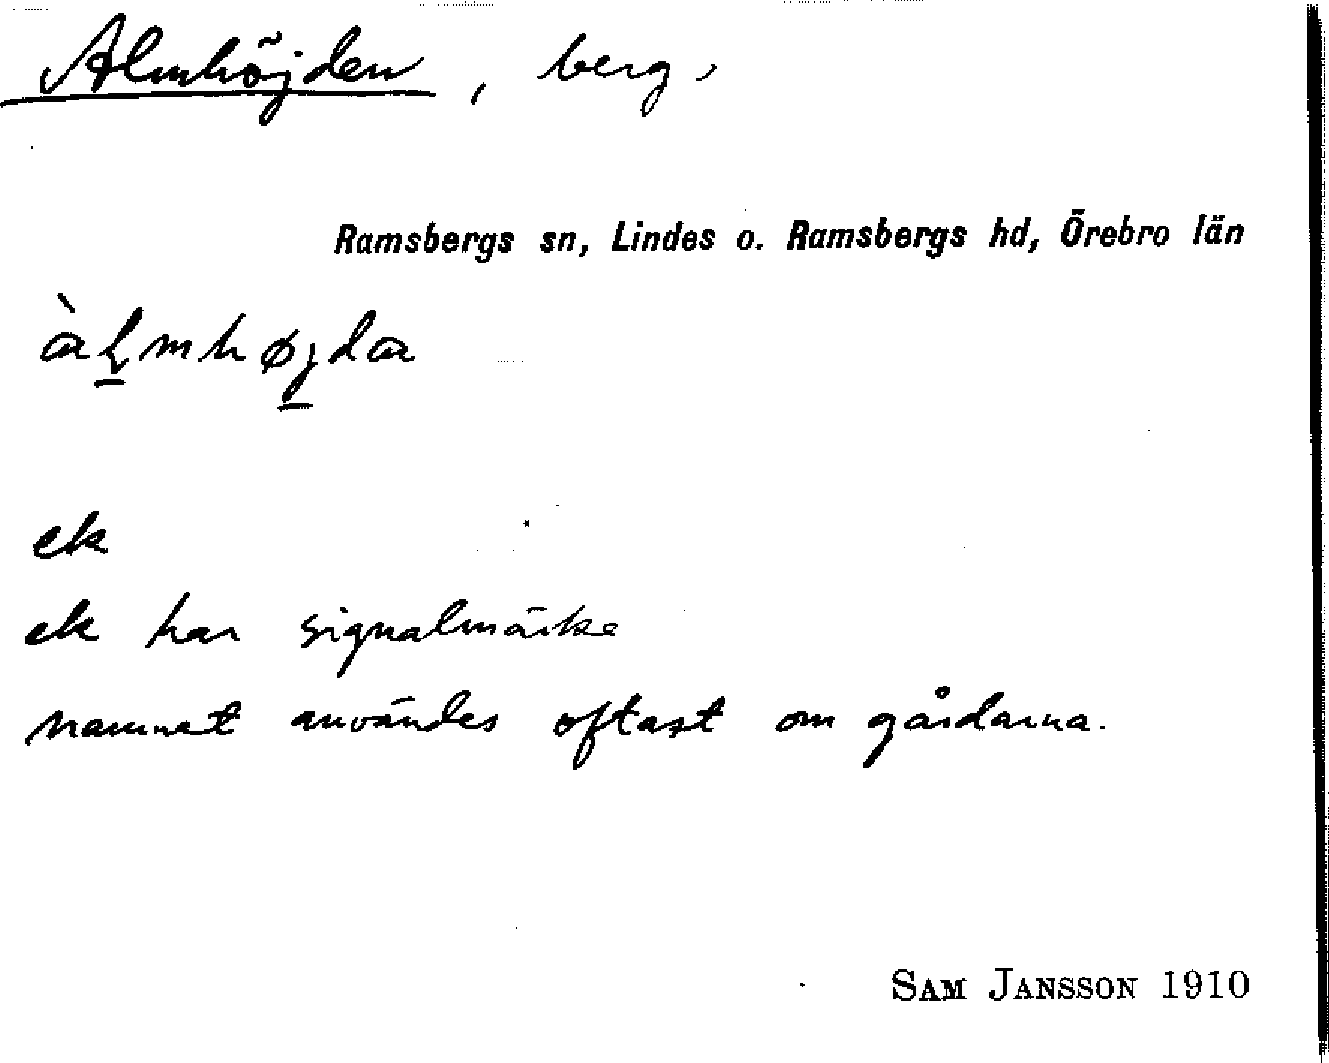 Almhöjden, berg,
Ramsbergs sn, Lindes o. Ramsbergs hd, Örebro län
àl̠mhøj̠da
ek
ek har signalmärke
namnet användes oftast om gårdarna.
SAM JANSSON 1910